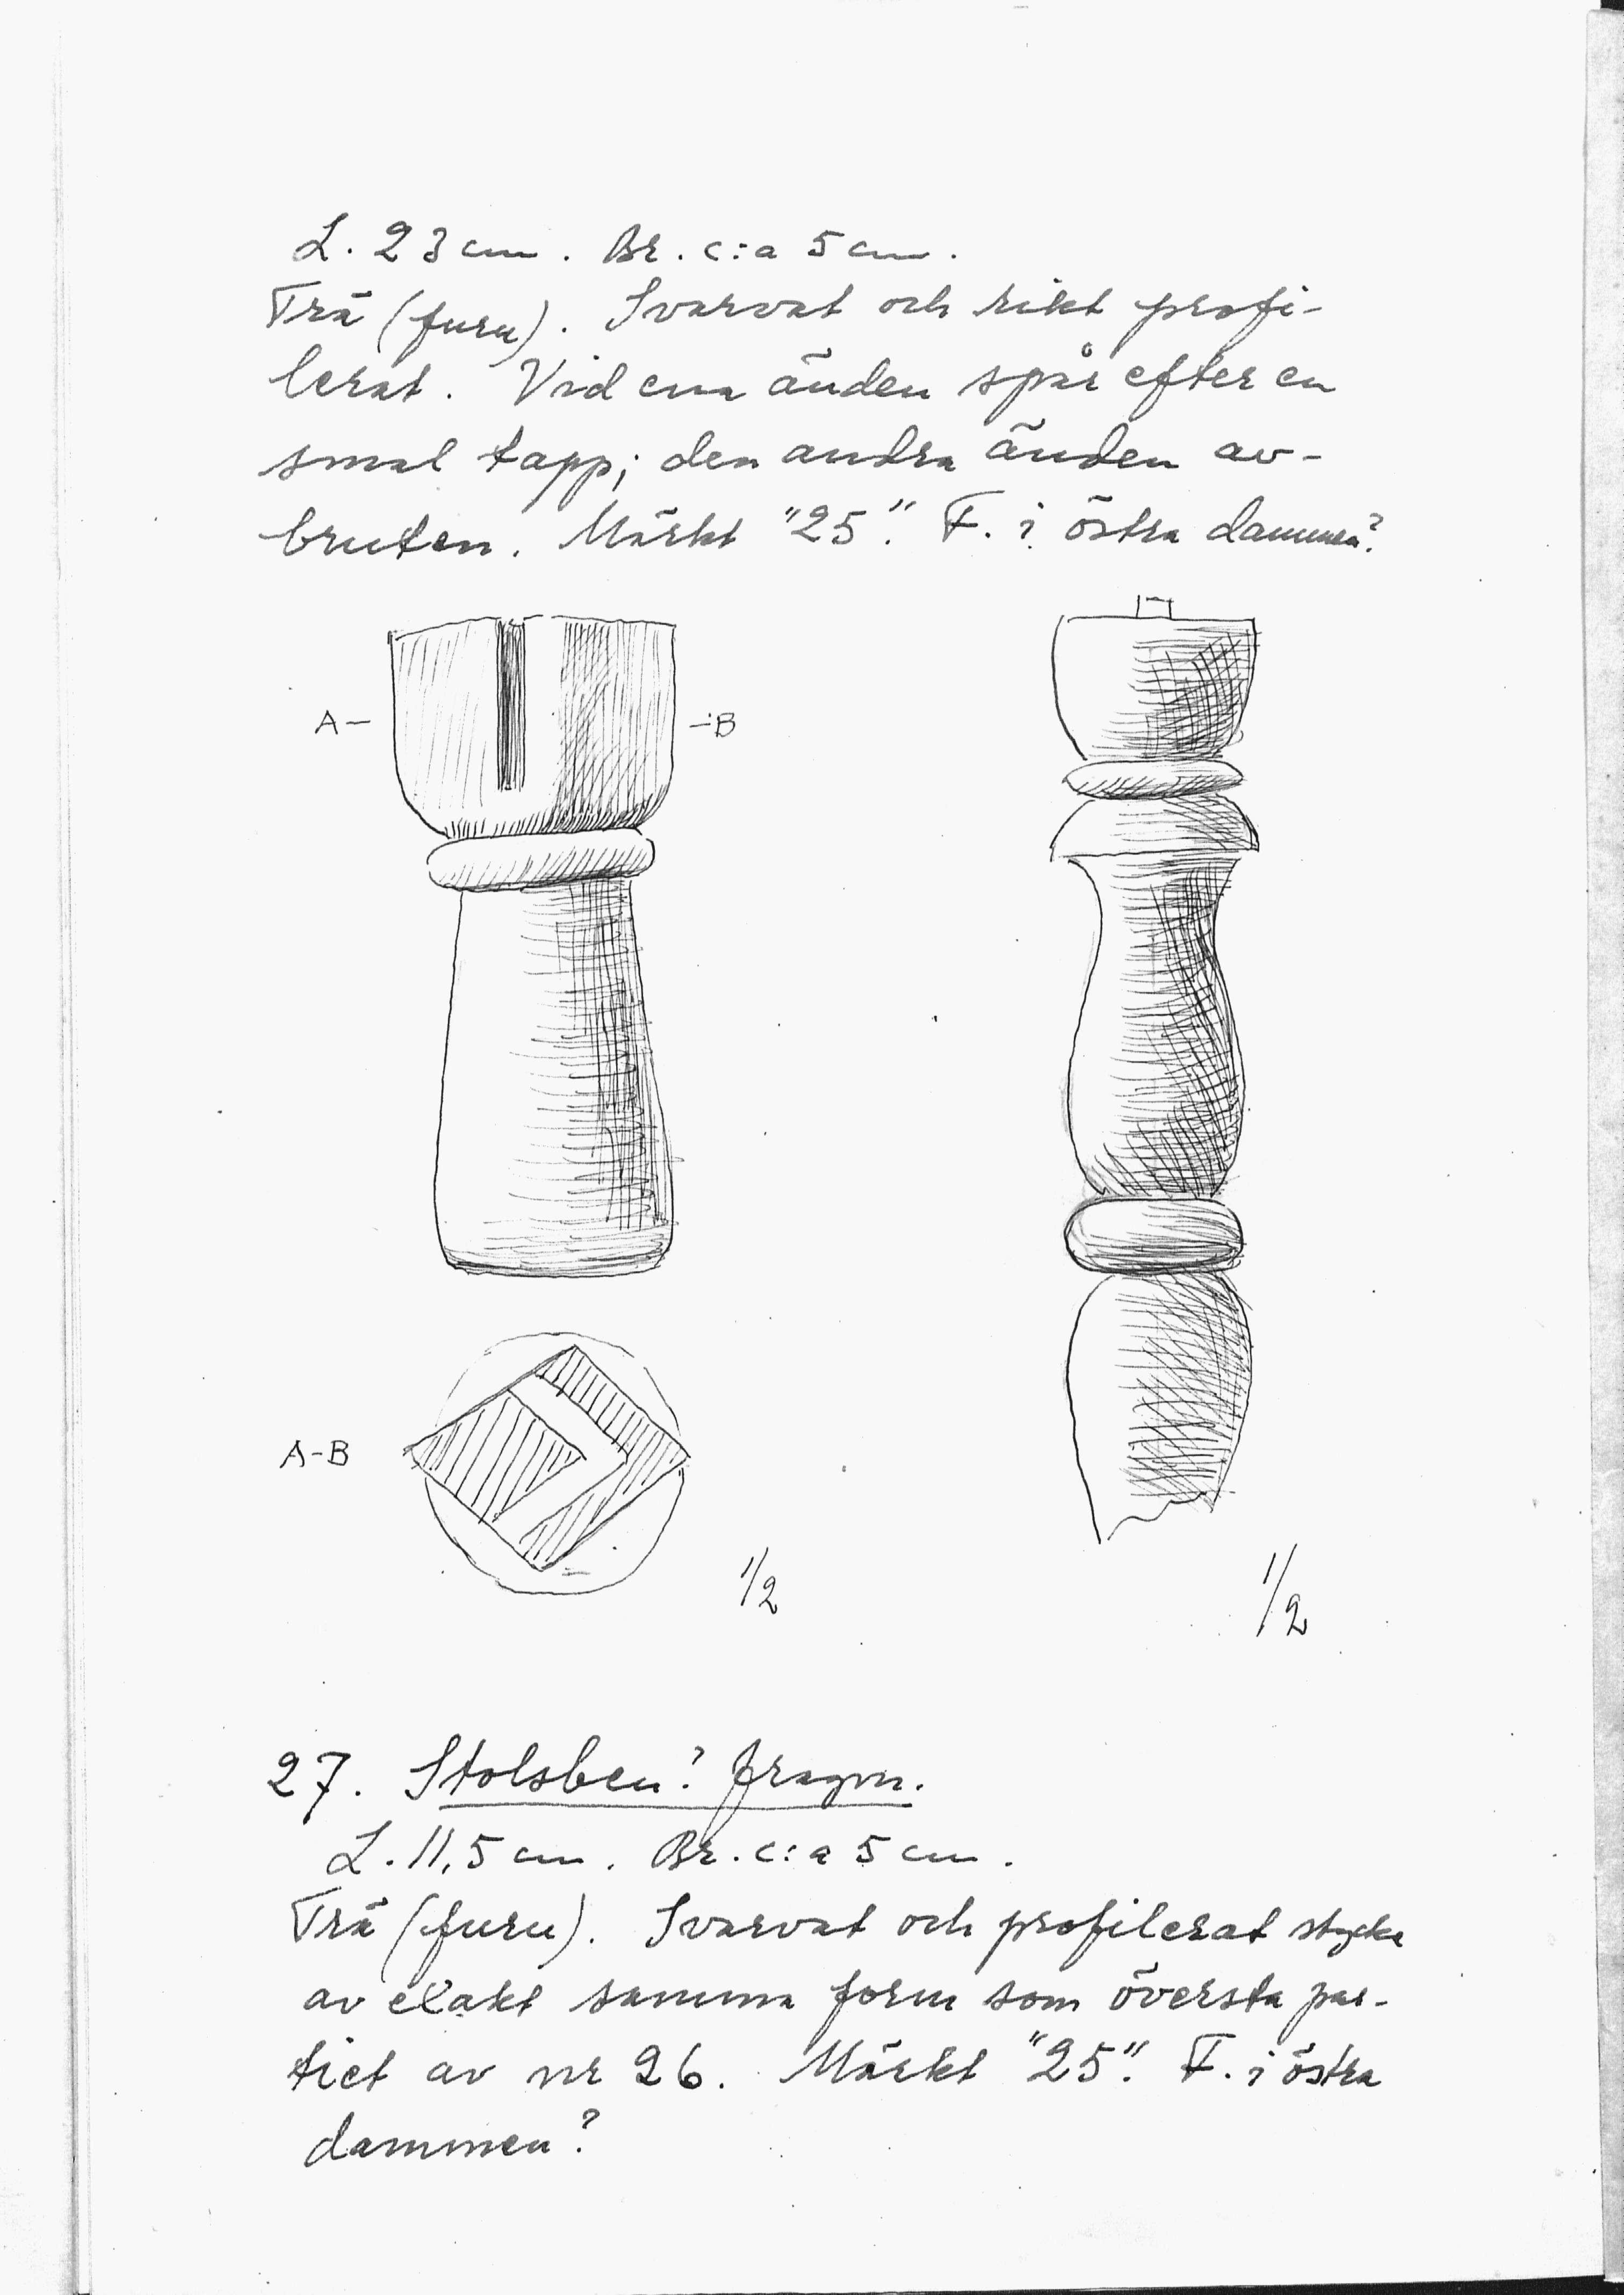 L. 23 cm. Br. c:a 5 cm.
Trä (furu). Svarvat och rikt profi-
lerat. Vid ena änden spår efter en
smal tapp; den andra änden av-
bruten. Märkt "25". F. i östra dammen?
A-
-B
A-B
1/2
1/2
27. Stolsben? fragm.
L. 11,5 cm. Br. c:a 5 cm.
Trä (furu). Svarvat och profilerat stycke
av exakt samma form som översta par-
tiet av nr 26. Märkt "25". F. i östra
dammen?